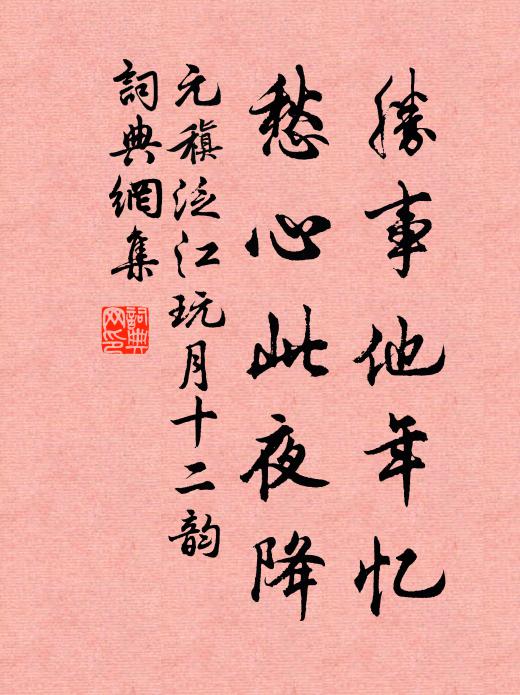 勝事他年忆
愁心此夜降
元稹泛江玩月十二韵
詞典網集
詞典
网印